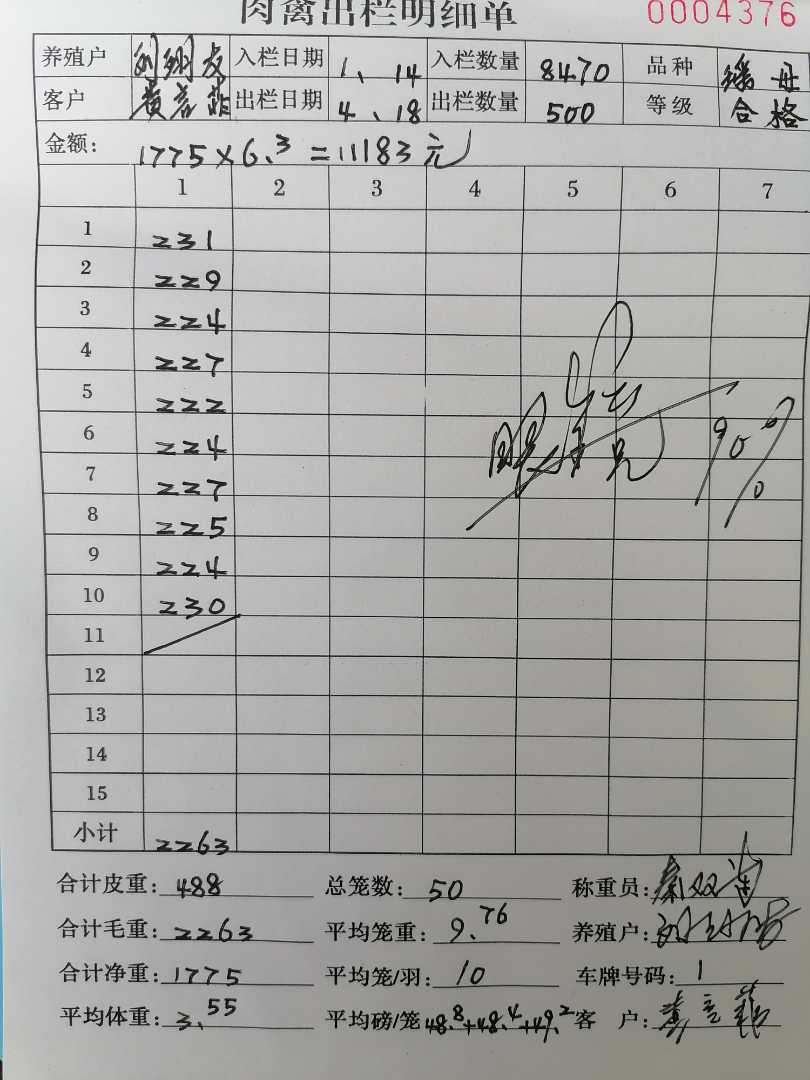 肉禽出栏明细单 0004376
养殖户 入栏日期 1、14 入栏数量 8470 品种
客户 出栏日期 4、18 出栏数量 500 等级 合格
金额: 1775×6.3=11183元
1 2 3 4 5 6 7
1 231
2 229
3 224
4 227
5 222
6 224
7 227
8 225
9 224
10 230
11
12
13
14
15
90%
小计 2263
合计皮重: 488 总笼数: 50 称重员:
合计毛重: 2263 平均笼重: 9.76 养殖户:
合计净重: 1775 平均笼/羽: 10 车牌号码: 1
平均体重: 3.55 平均磅/笼 48.8+48.4+49.2 客 户: